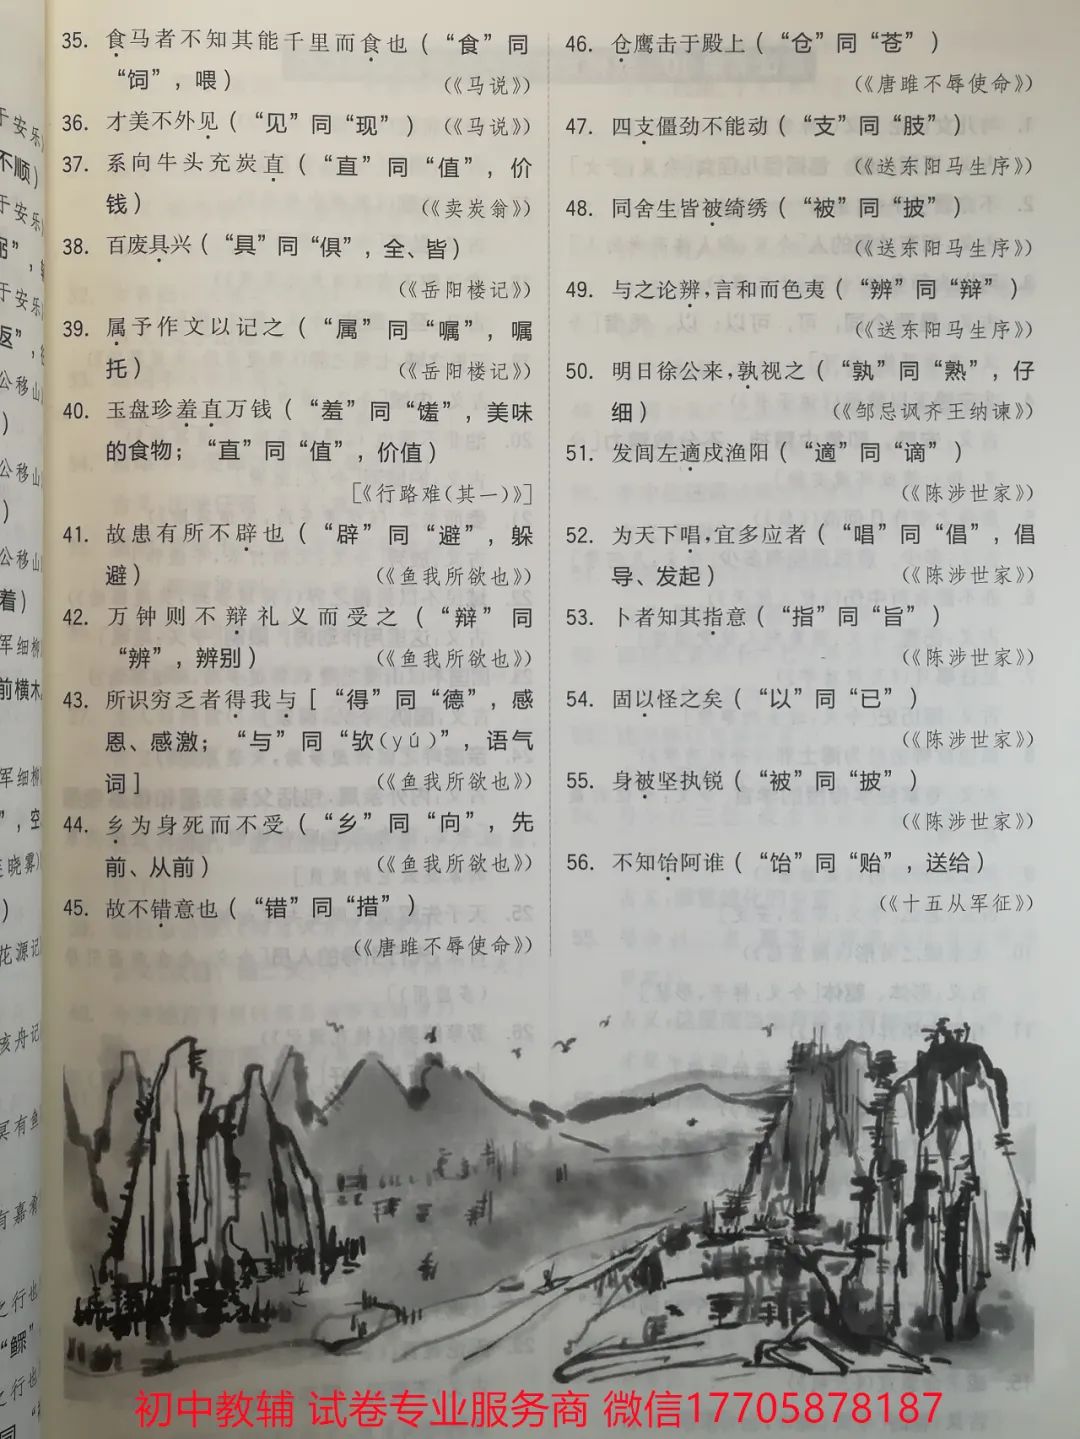 35. 食马者不知其能千里而食也（“食”同
“饲”，喂）（《马说》）
36. 才美不外见（“见”同“现”）（《马说》）
37. 系向牛头充炭直（“直”同“值”，价
钱）（《卖炭翁》）
38. 百废具兴（“具”同“俱”，全、皆）
（《岳阳楼记》）
39. 属予作文以记之（“属”同“嘱”，嘱
托）（《岳阳楼记》）
40. 玉盘珍羞直万钱（“羞”同“馐”，美味
的食物；“直”同“值”，价值）
[《行路难（其一）》]
41. 故患有所不辟也（“辟”同“避”，躲
避）（《鱼我所欲也》）
42. 万钟则不辩礼义而受之（“辩”同
“辨”，辨别）（《鱼我所欲也》）
43. 所识穷乏者得我与[“得”同“德”，感
恩、感激；“与”同“欤（yú）”，语气
词]（《鱼我所欲也》）
44. 乡为身死而不受（“乡”同“向”，先
前、从前）（《鱼我所欲也》）
45. 故不错意也（“错”同“措”）
（《唐雎不辱使命》）
46. 仓鹰击于殿上（“仓”同“苍”）
（《唐雎不辱使命》）
47. 四支僵劲不能动（“支”同“肢”）
（《送东阳马生序》）
48. 同舍生皆被绮绣（“被”同“披”）
（《送东阳马生序》）
49. 与之论辨，言和而色夷（“辨”同“辩”）
（《送东阳马生序》）
50. 明日徐公来，孰视之（“孰”同“熟”，仔
细）（《邹忌讽齐王纳谏》）
51. 发闾左適戍渔阳（“適”同“谪”）
（《陈涉世家》）
52. 为天下唱，宜多应者（“唱”同“倡”，倡
导、发起）（《陈涉世家》）
53. 卜者知其指意（“指”同“旨”）
（《陈涉世家》）
54. 固以怪之矣（“以”同“已”）
（《陈涉世家》）
55. 身被坚执锐（“被”同“披”）
（《陈涉世家》）
56. 不知饴阿谁（“饴”同“贻”，送给）
（《十五从军征》）
初中教辅 试卷专业服务商 微信17705878187